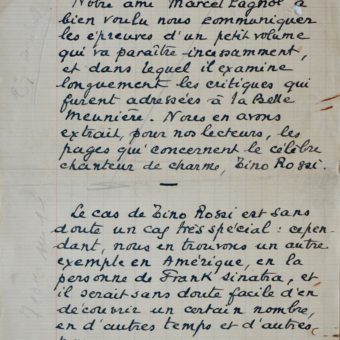 Notre ami Marcel Pagnol a
bien voulu nous communiquer
les épreuves d'un petit volume
qui va paraître incessamment,
et dans lequel il examine
longuement les critiques qui
furent adressées à la Belle
Meunière. Nous en avons
extrait, pour nos lecteurs, les
pages qui concernent le célèbre
chanteur de charme, Tino Rossi.
Le cas de Tino Rossi est sans
doute un cas très spécial : cepen-
dant, nous en trouvons un autre
exemple en Amérique, en la
personne de Frank Sinatra, et
il serait sans doute facile d'en
découvrir un certain nombre,
en d'autres temps et d'autres